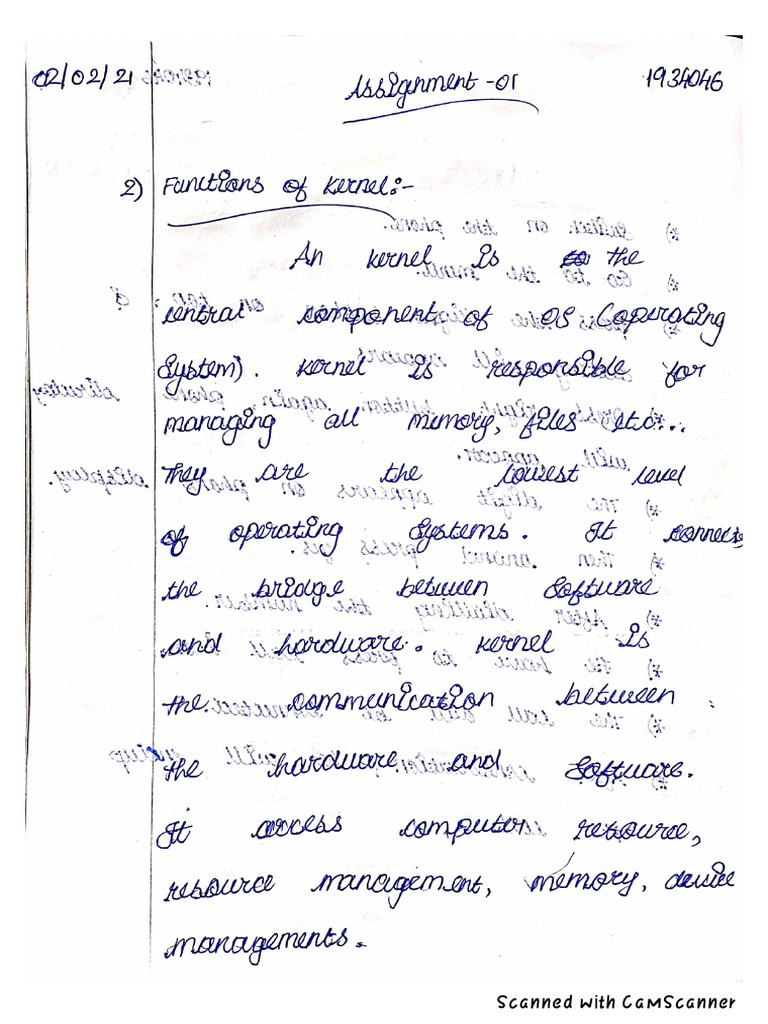 02/02/21 Assignment -01 1934046
2) Functions of kernel:-
An kernel is the
central component of OS (operating
System). kernel is responsible for
managing all memory, files etc...
They are the lowest level
of operating systems. It connects
the bridge between Software
and hardware. kernel is
the communication between
the hardware and Software.
It access computer resource,
resource management, memory, device
managements.
Scanned with CamScanner